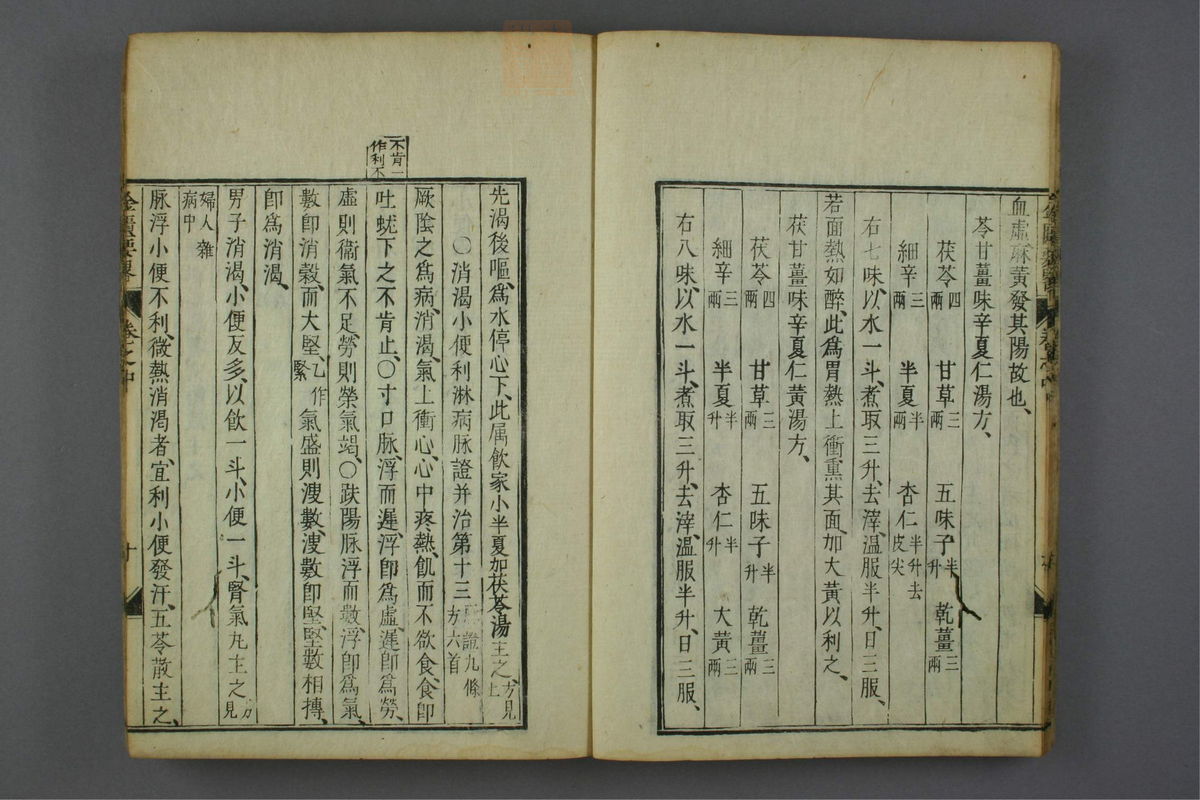 血虛麻黃發其陽故也、
苓甘薑味辛夏仁湯方、
茯苓四兩 甘草三兩 五味子半升 乾薑三兩
細辛三兩 半夏半兩 杏仁半升去皮尖
右七味、以水一斗、煮取三升、去滓、溫服半升、日三服、
若面熱如醉、此爲胃熱上衝熏其面、加大黃以利之、
茯甘薑味辛夏仁黃湯方、
茯苓四兩 甘草三兩 五味子半升 乾薑三兩
細辛三兩 半夏半升 杏仁半升 大黃三兩
右八味、以水一斗、煮取三升、去滓、溫服半升、日三服、
先渴後嘔、爲水停心下、此属飲家小半夏加茯苓湯主之、方見上
○消渴小便利淋病脉證并治第十三 證九條方六首
厥陰之爲病、消渴、氣上衝心、心中疼熱、飢而不欲食、食即
不肯一作利不
吐蚘、下之不肯止、○寸口脉、浮而遲、浮即爲虛、遲即爲勞、
虛則衞氣不足、勞則榮氣竭、○趺陽脉浮而數、浮即爲氣、
數即消穀、而大堅、一作緊氣盛則溲數、溲數即堅、堅數相搏、
即爲消渴、
男子消渴、小便反多、以飲一斗、小便一斗、腎氣丸主之、方見
婦人雜病中
脉浮小便不利、微熱消渴者、宜利小便發汗、五苓散主之、
金匱要畧 卷之中 十